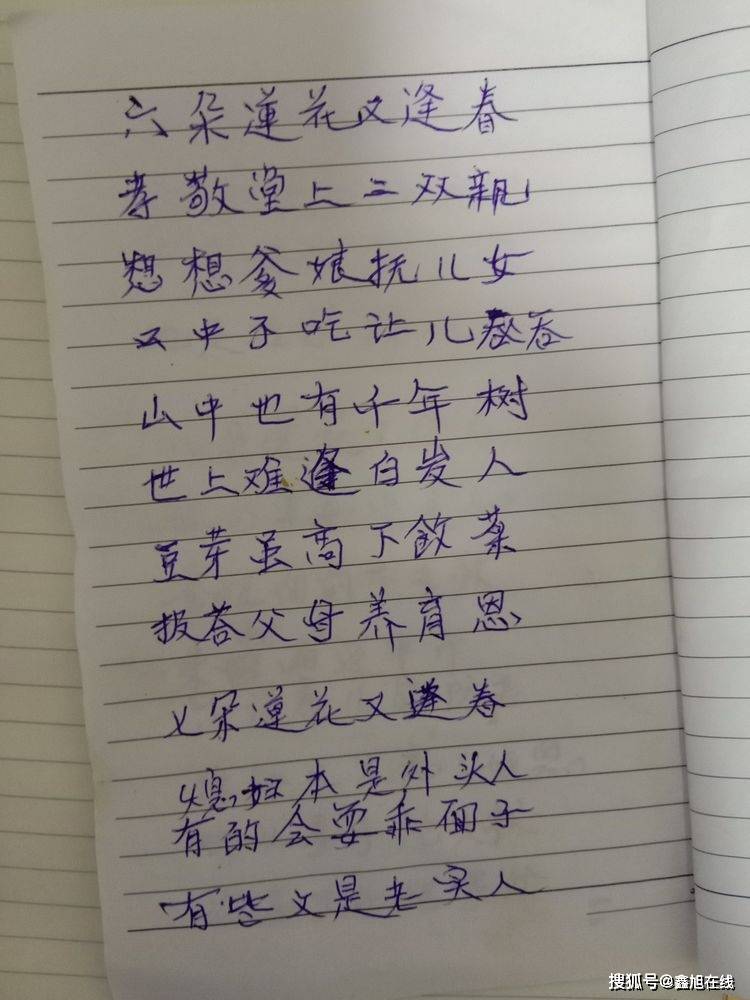 六朵蓮花又逢春
孝敬堂上二双親
想想爹娘抚儿女
口中子吃让儿吞
山中也有千年树
世上难逢白发人
豆芽虽高下飲菜
报答父母养育恩
七朵蓮花又逢春
媳妇本是外头人
有的会耍乖面子
有些又是老实人
搜狐号@鑫旭在线